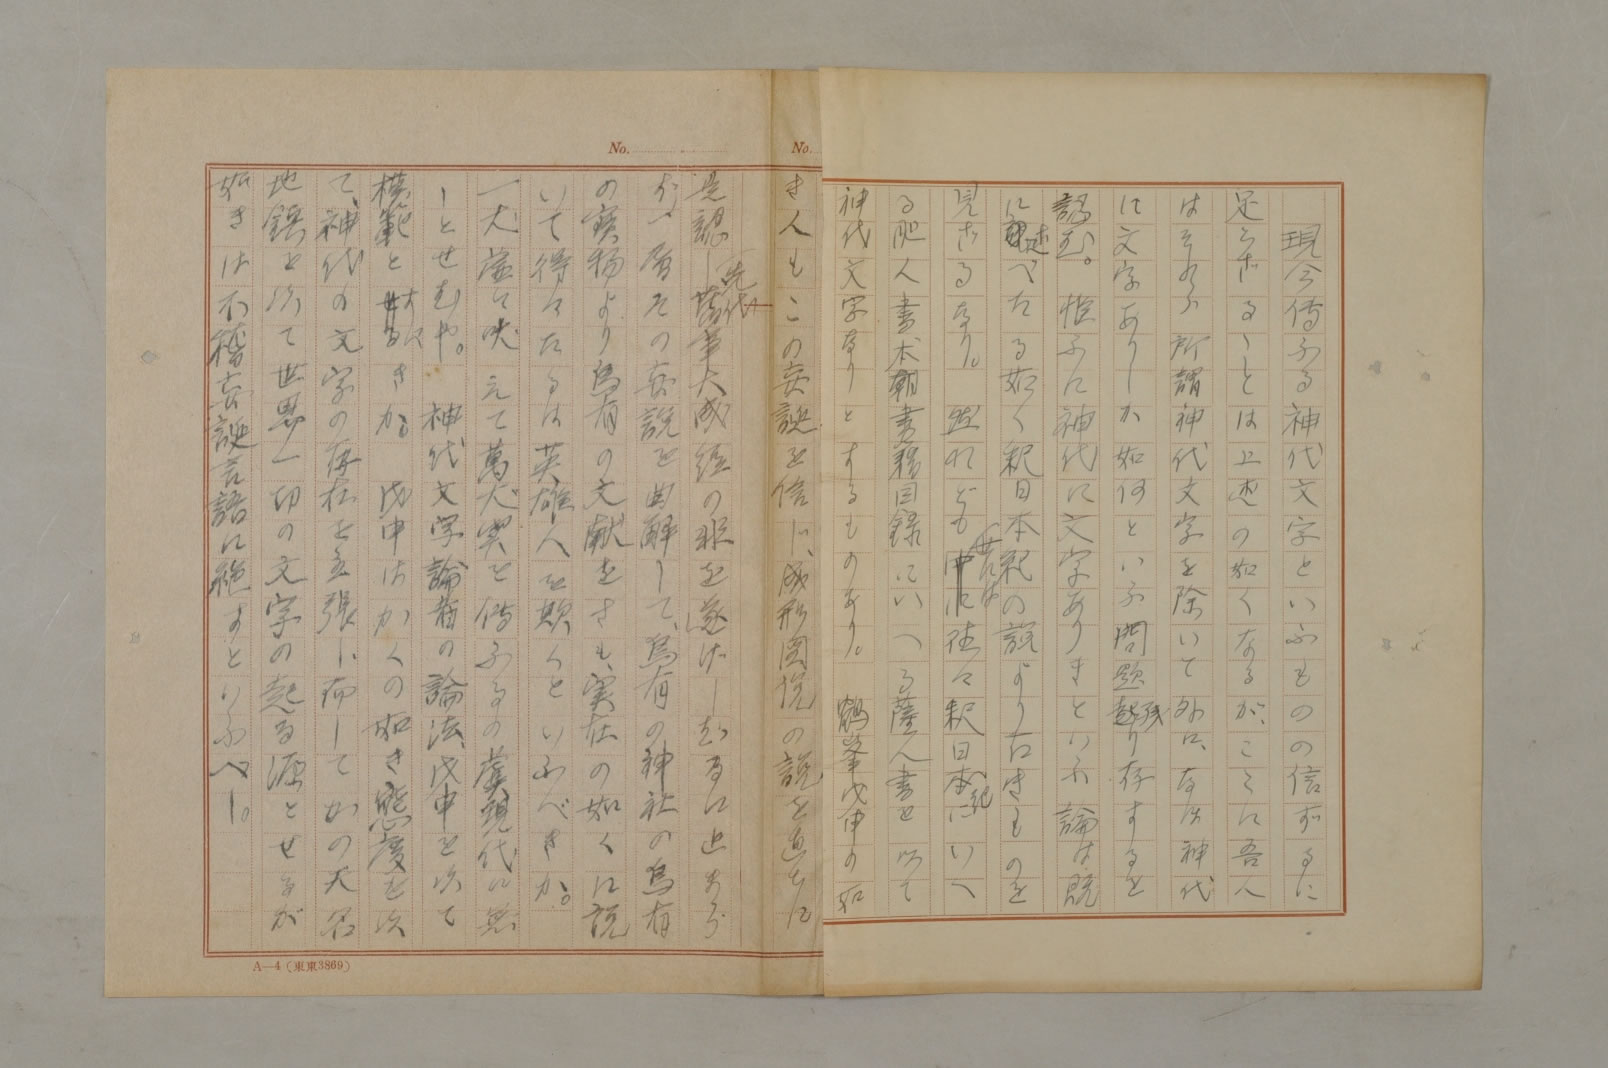 No.
No.
現今傳ふる神代文字といふものの信ずるに
足らざることは上述の如くなるが、ここに吾人
はそれら所謂神代文字を除いて外に、なほ神代
に文字ありしか如何といふ問題残り存するを
認む。惟ふに神代に文字ありきといふ論は既
に述べたる如く釈日本紀の説より古きものを
見ざるなり。然れども世には往々釈日本紀にいへ
る肥人書本朝書籍目録にいへる薩人書を以て
神代文字なりとするものあり。鶴峯戊申の如
き人もこの妄誕を信じ、成形圖説の説を直ちに
是認し先代舊事大成経の非を遂げしむるに止まら
ず、一層その妄説を曲解して、烏有の神社の烏有
の寶物より烏有の文献をさも、実在の如くに説
いて得々たるは英雄人を欺くといふべきか。
一犬虚に吠えて萬犬実を傳ふるの
しとせむや。神代文字論者の論法、戊申を以て
模範とすべきか。戊申はかくの如き態度を以
て、神代の文字の存在を主張し、而してかの天名
地鎮を以て世界一切の文字の起る源とせるが
如きは不稽妄誕言語に絶すといふべし。
A—4（東東3869）